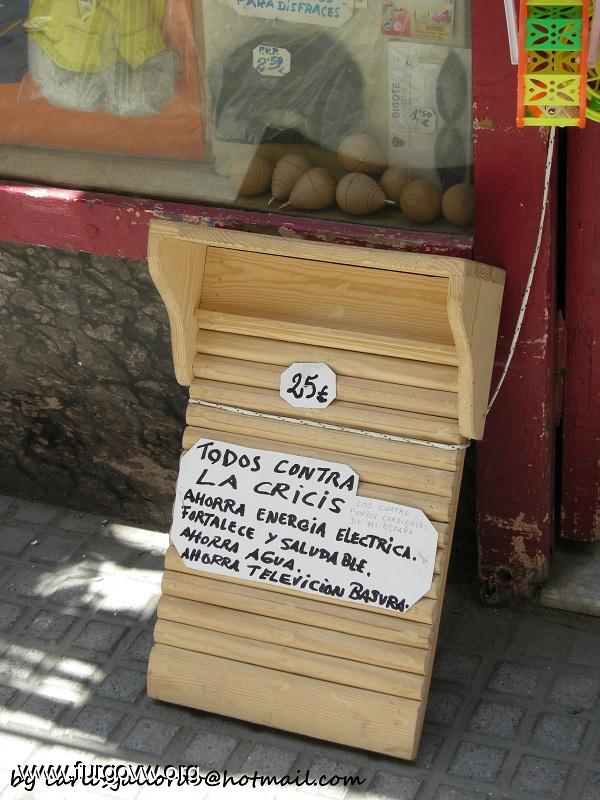 PARA DISFRACES
P.V.P.
2'50
BIGOTE
1'50
25€
TODOS CONTRA
LA CRICIS
LOS CUATRO
PUNTOS CARDINALES
DE MI ESPAÑA
AHORRA ENERGIA ELECTRICA.
FORTALECE Y SALUDABLE.
AHORRA AGUA.
AHORRA TELEVICION BASURA.
www.furgovw.org